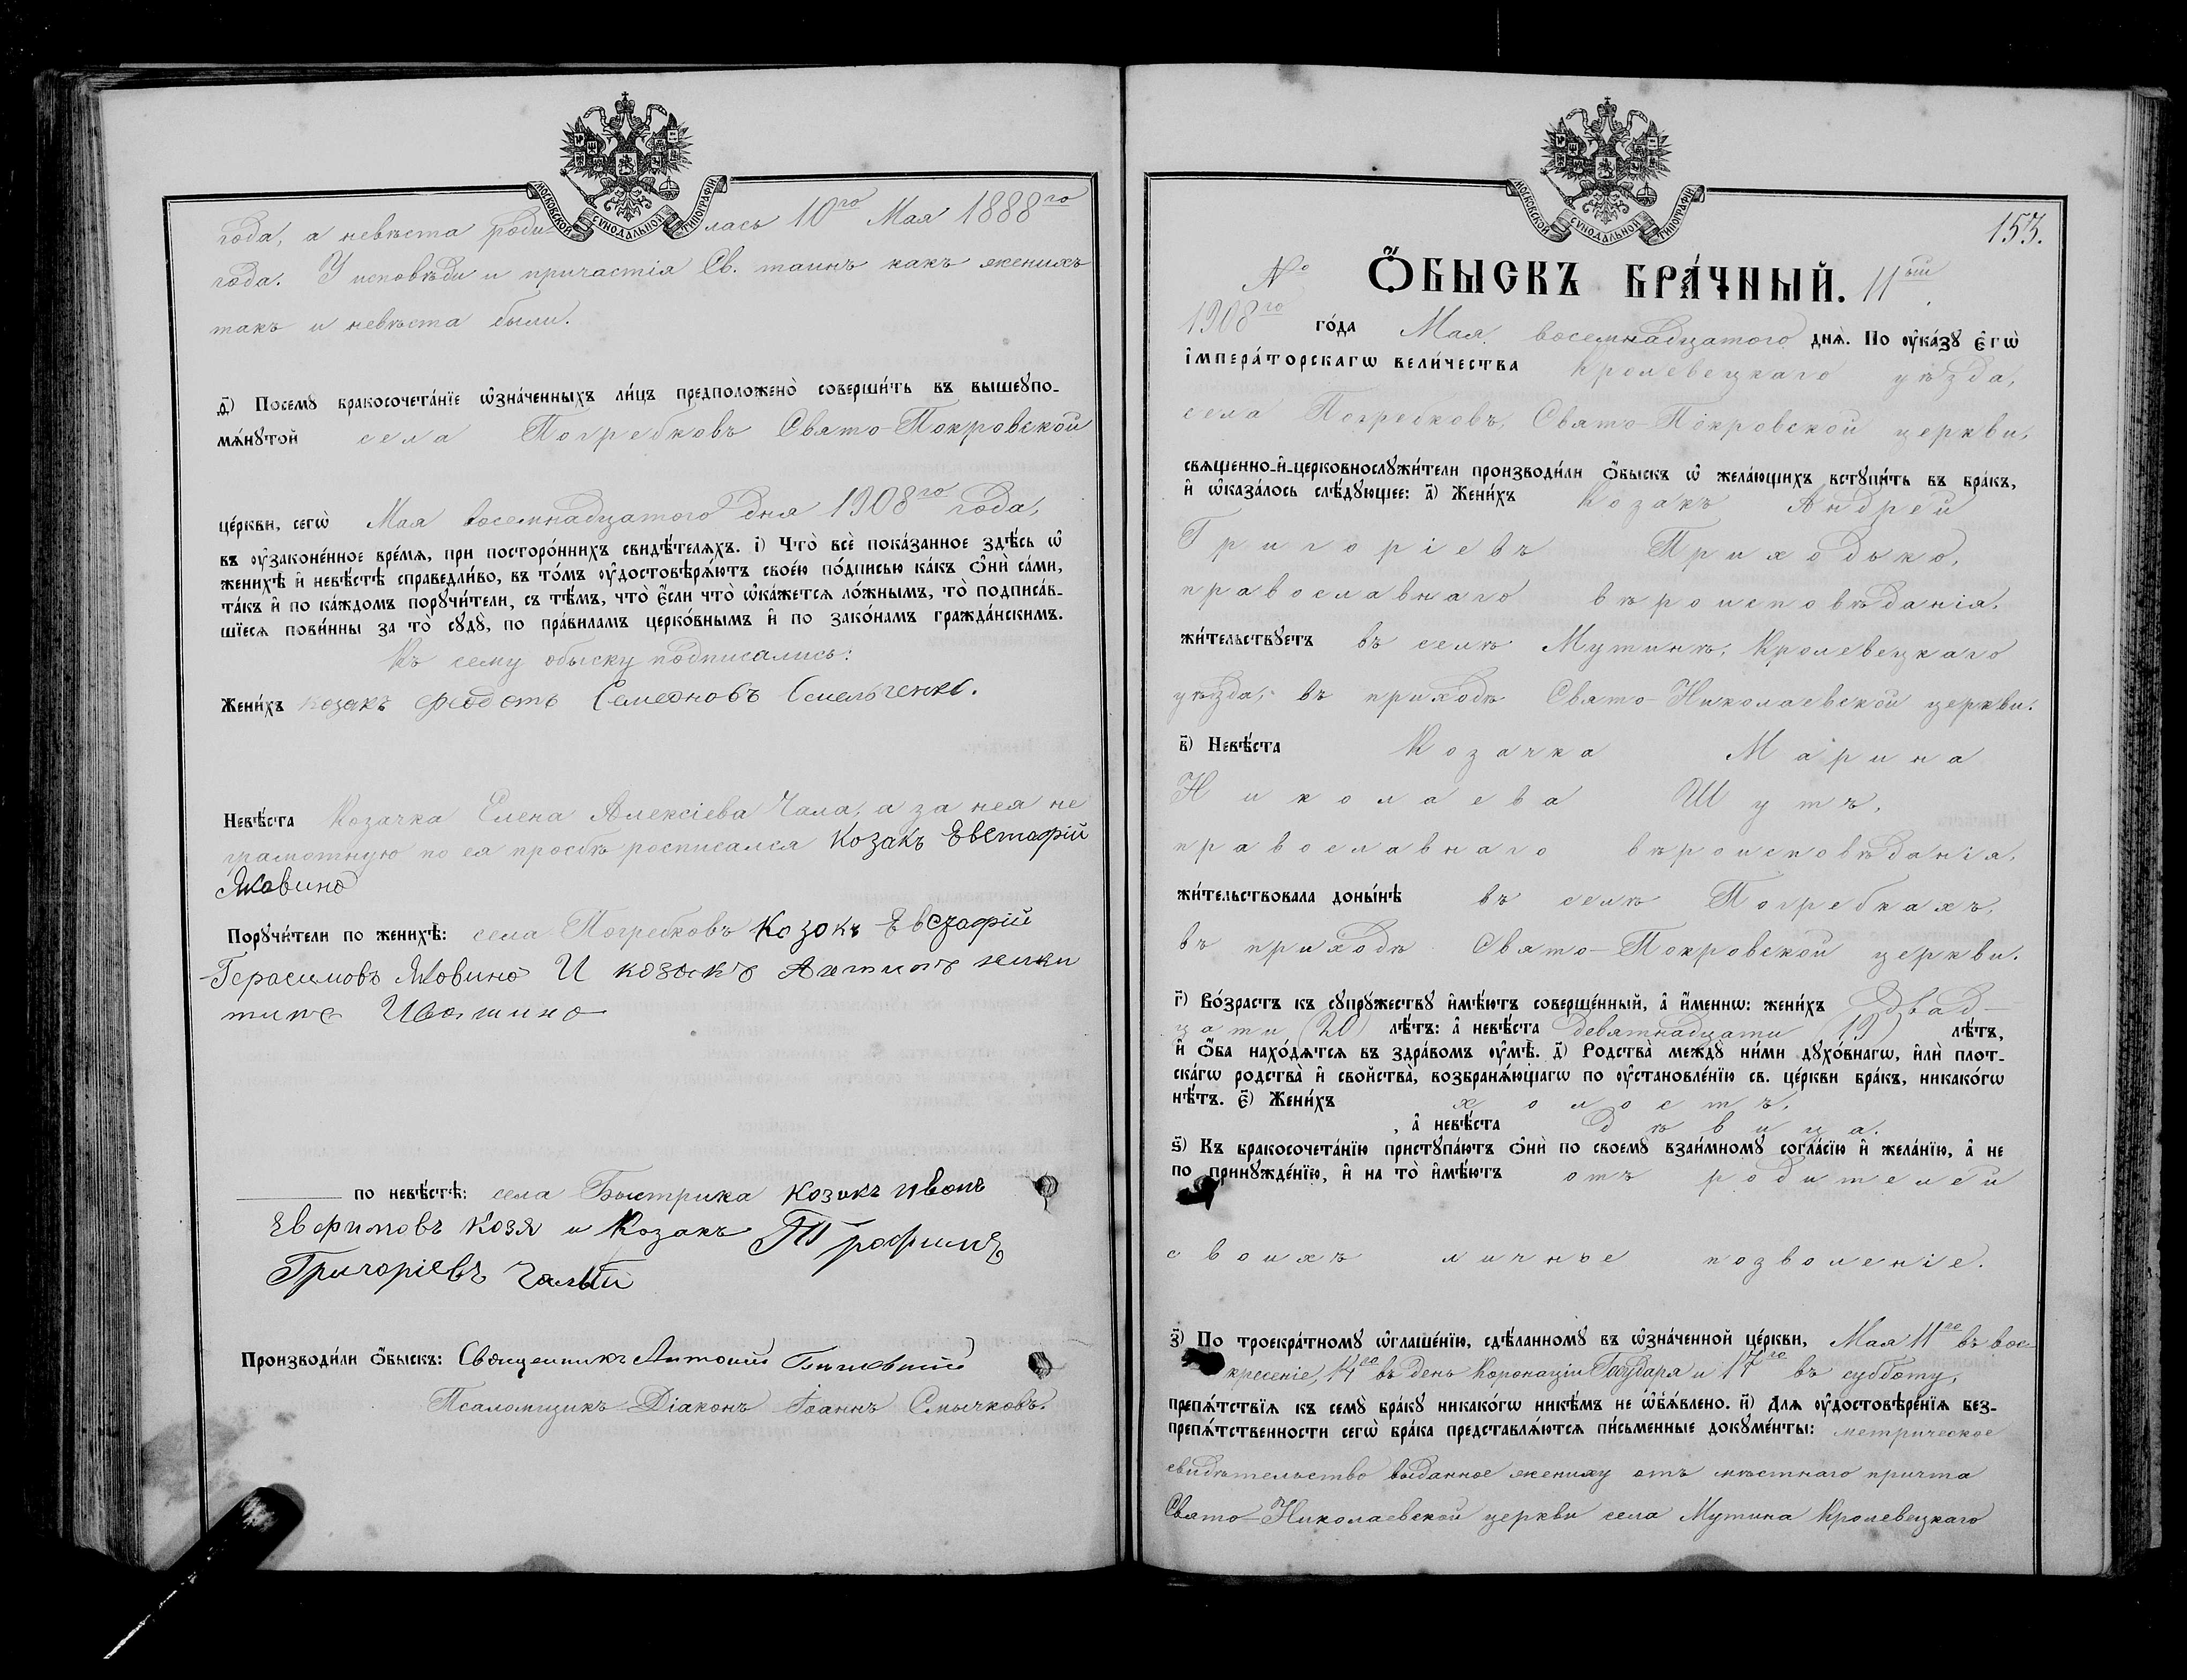 МОСКОВСКОЙ СУНОДАЛЬНОЙ ТИПОГРАФІИ
года, а невѣста роди-лась 10го Мая 1888го
года. У исповѣди и причастія Св. таинъ какъ женихъ
такъ и невѣста были.
д҃і) Посемꙋ бракосочета́нїе ѡ҆зна́ченныхъ ли́цъ предположено̀ соверши́ть въ вышеꙋпо-
мѧ́нꙋтой села Погребковъ Свято-Покровской
це́ркви, сегѡ̀ Мая восемнадцатого дня 1908го года,
въ ᲂу҆законе́нное вре́мѧ, при посторо́ннихъ свидѣ́телѧхъ. і҃) Что̀ всѐ пока́занное здѣ́сь ѡ҆
женихѣ̀ и҆ невѣ́стѣ справедли́во, въ то́мъ ᲂу҆достовѣрѧ́ютъ свое́ю по́дписью ка́къ ѻ҆нѝ са́ми,
та́къ и҆ по ка́ждомъ порꙋчи́тели, съ тѣ́мъ, что̀ є҆́сли что̀ ѡ҆ка́жетсѧ ло́жнымъ, то̀ подписа́в-
шїесѧ пови́нны за то̀ сꙋдꙋ̀, по пра́виламъ церко́внымъ и҆ по зако́намъ гражда́нскимъ.
Къ сему обыску подписались:
Жени́хъ козакъ Федотъ Семеоновъ Смельченко.
Невѣ́ста Козачка Елена Алексіева Чала, а за нея не
грамотную по ея просьбѣ росписался Козакъ Евстафій
Яковино
Порꙋчи́тели по женихѣ̀: села Погребковъ Козокъ Евстафій
Герасимовъ Яковино И козокъ
по невѣ́стѣ: села Быстрика козокъ Ивонъ
Евфимовъ Козя и Козакъ Трофимъ
Григоріевъ Чалый
Производи́ли ѻ҆́быскъ: Священникъ Антоній
Псаломщикъ-Діаконъ Іоаннъ Смычковъ.
МОСКОВСКОЙ СУНОДАЛЬНОЙ ТИПОГРАФІИ
153.
№ Ѻ҆́БЫСКЪ БРА́ЧНЫЙ. 11ый
1908го го́да Мая восемнадцатого днѧ̀. По ᲂу҆ка́зꙋ є҆гѡ̀
і҆мпера́торскагѡ вели́чества Кролевецкаго уѣзда,
села Погребковъ, Свято-Покровской церкви,
свѧщенно-и҆-церковнослꙋжи́тели производи́ли ѻ҆́быскъ ѡ҆ жела́ющихъ встꙋпи́ть въ бра́къ,
и҆ ѡ҆каза́лось слѣ́дꙋющее: а҃) Жени́хъ Козакъ Андрей
Григоріевъ Приходько,
православнаго вѣроисповѣданія.
жи́тельствꙋетъ въ селѣ Мутинѣ, Кролевецкаго
уѣзда, въ приходѣ Свято-Николаевской церкви.
в҃) Невѣ́ста Козачка Марина
Николаева Шутъ,
православнаго вѣроисповѣданія,
жи́тельствовала доны́нѣ въ селѣ Погребкахъ,
въ приходѣ Свято-Покровской церкви.
г҃) Во́зрастъ къ сꙋпрꙋ́жествꙋ и҆мѣ́ютъ соверше́нный, а҆ и҆́меннѡ: жени́хъ Двад-
цати (20) лѣ́тъ: а҆ невѣ́ста девятнадцати (19) лѣ́тъ,
и҆ ѻ҆́ба нахо́дѧтсѧ въ здра́вомъ ᲂу҆мѣ̀. д҃) Родства̀ междꙋ̀ ни́ми дꙋхо́внагѡ, и҆лѝ плот-
ска́гѡ родства̀ и҆ свойства̀, возбранѧ́ющагѡ по ᲂу҆становле́нїю св. це́ркви бра́къ, никако́гѡ
нѣ́тъ. є҃) Жени́хъ холостъ.
, а҆ невѣ́ста дѣвица.
ѕ҃) Къ бракосочета́нїю пристꙋпа́ютъ ѻ҆нѝ по своемꙋ̀ взаи́мномꙋ согла́сїю и҆ жела́нїю, а҆ не
по принꙋжде́нїю, и҆ на то̀ и҆мѣ́ютъ отъ родителей
своихъ личное позволеніе.
з҃) По троекра́тномꙋ ѡ҆глаше́нїю, сдѣ́ланномꙋ въ ѡ҆зна́ченной це́ркви, Мая 11го въ вос-
кресеніе, 14го въ день Коронаціи Государя и 17го въ субботу,
препѧ́тствїѧ къ семꙋ̀ бра́кꙋ никако́гѡ никѣ́мъ не ѡ҆б̾ѧ́влено. и҃) Длѧ ᲂу҆достовѣре́нїѧ без-
препѧ́тственности сегѡ̀ бра́ка представлѧ́ютсѧ пи́сьменные докꙋме́нты: метрическое
свидѣтельство выданное жениху отъ мѣстнаго причта
Свято-Николаевской церкви села Мутина Кролевецкаго